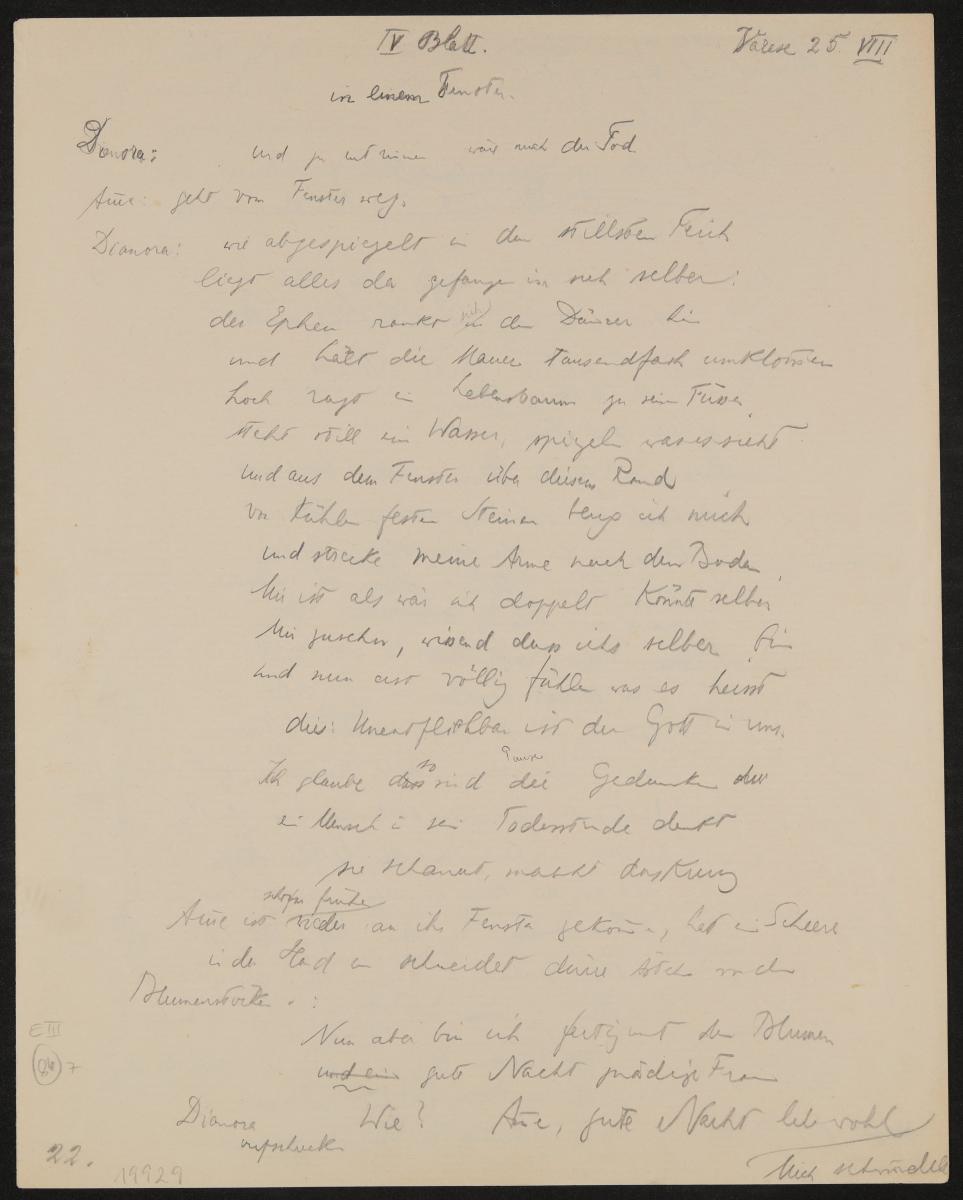 IV Blatt.
Varese 25. VIII
in einem Fenster.
Dianora: und zu mir der Tod
Amme: geht vom Fenster weg.
Dianora: wie abgespiegelt in den stillsten Teich
liegt alles da gefangen in sich selber:
der Epheu rankt sich in den Dämmer hin
und hält die Mauer tausendfach umklommen
hoch ragt ein Lebensbaum zu seinen Füssen
steht still ein Wasser, spiegelt was es sieht
und aus dem Fenster über diesen Rand
von kühlen festen Steinen beug ich mich
und strecke meine Arme nach dem Boden,
Mir ist als wär ich doppelt könnte selber
Mir zusehen, wissend dass ichs selber bin
und nun erst völlig fühlen was es heisst
dies: Unentfliehbar ist der Gott in uns.
Pause
Ich glaube so sind die Gedanken die
ein Mensch in seiner Todesstunde denkt
sie schauert, macht das Kreuz
Amme ist schon früher wieder an ihr Fenster gekommen, hat eine Scheere
in der Hand und schneidet dürre von den
Blumenstöcken.:
Nun aber bin ich fertig mit den Blumen
und eine gute Nacht gnädige Frau
Dianora Wie? Amme, gute Nacht leb wohl
aufschreckend
Mich schwindelt
E III
7
22.
19929